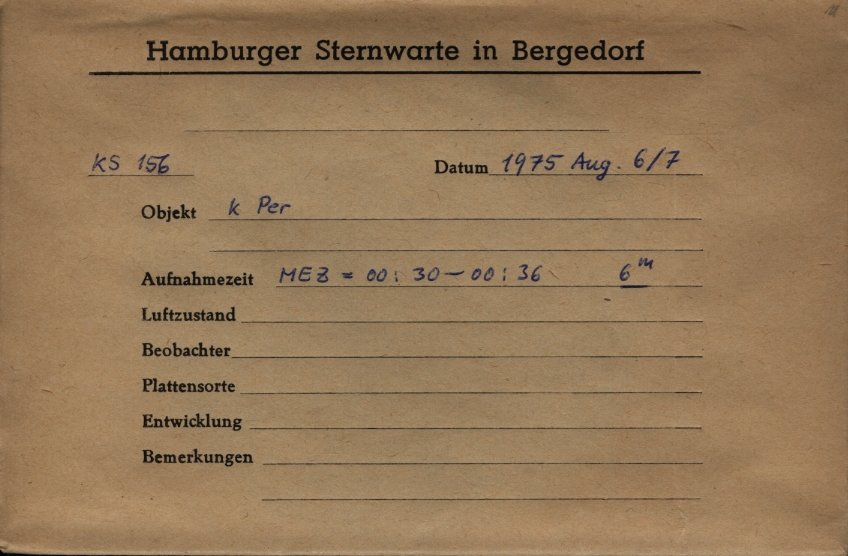 Hamburger Sternwarte in Bergedorf
KS 156 Datum 1975 Aug. 6/7
Objekt k Per
Aufnahmezeit MEZ = 00:30-00:36 6ᵐ
Luftzustand
Beobachter
Plattensorte
Entwicklung
Bemerkungen